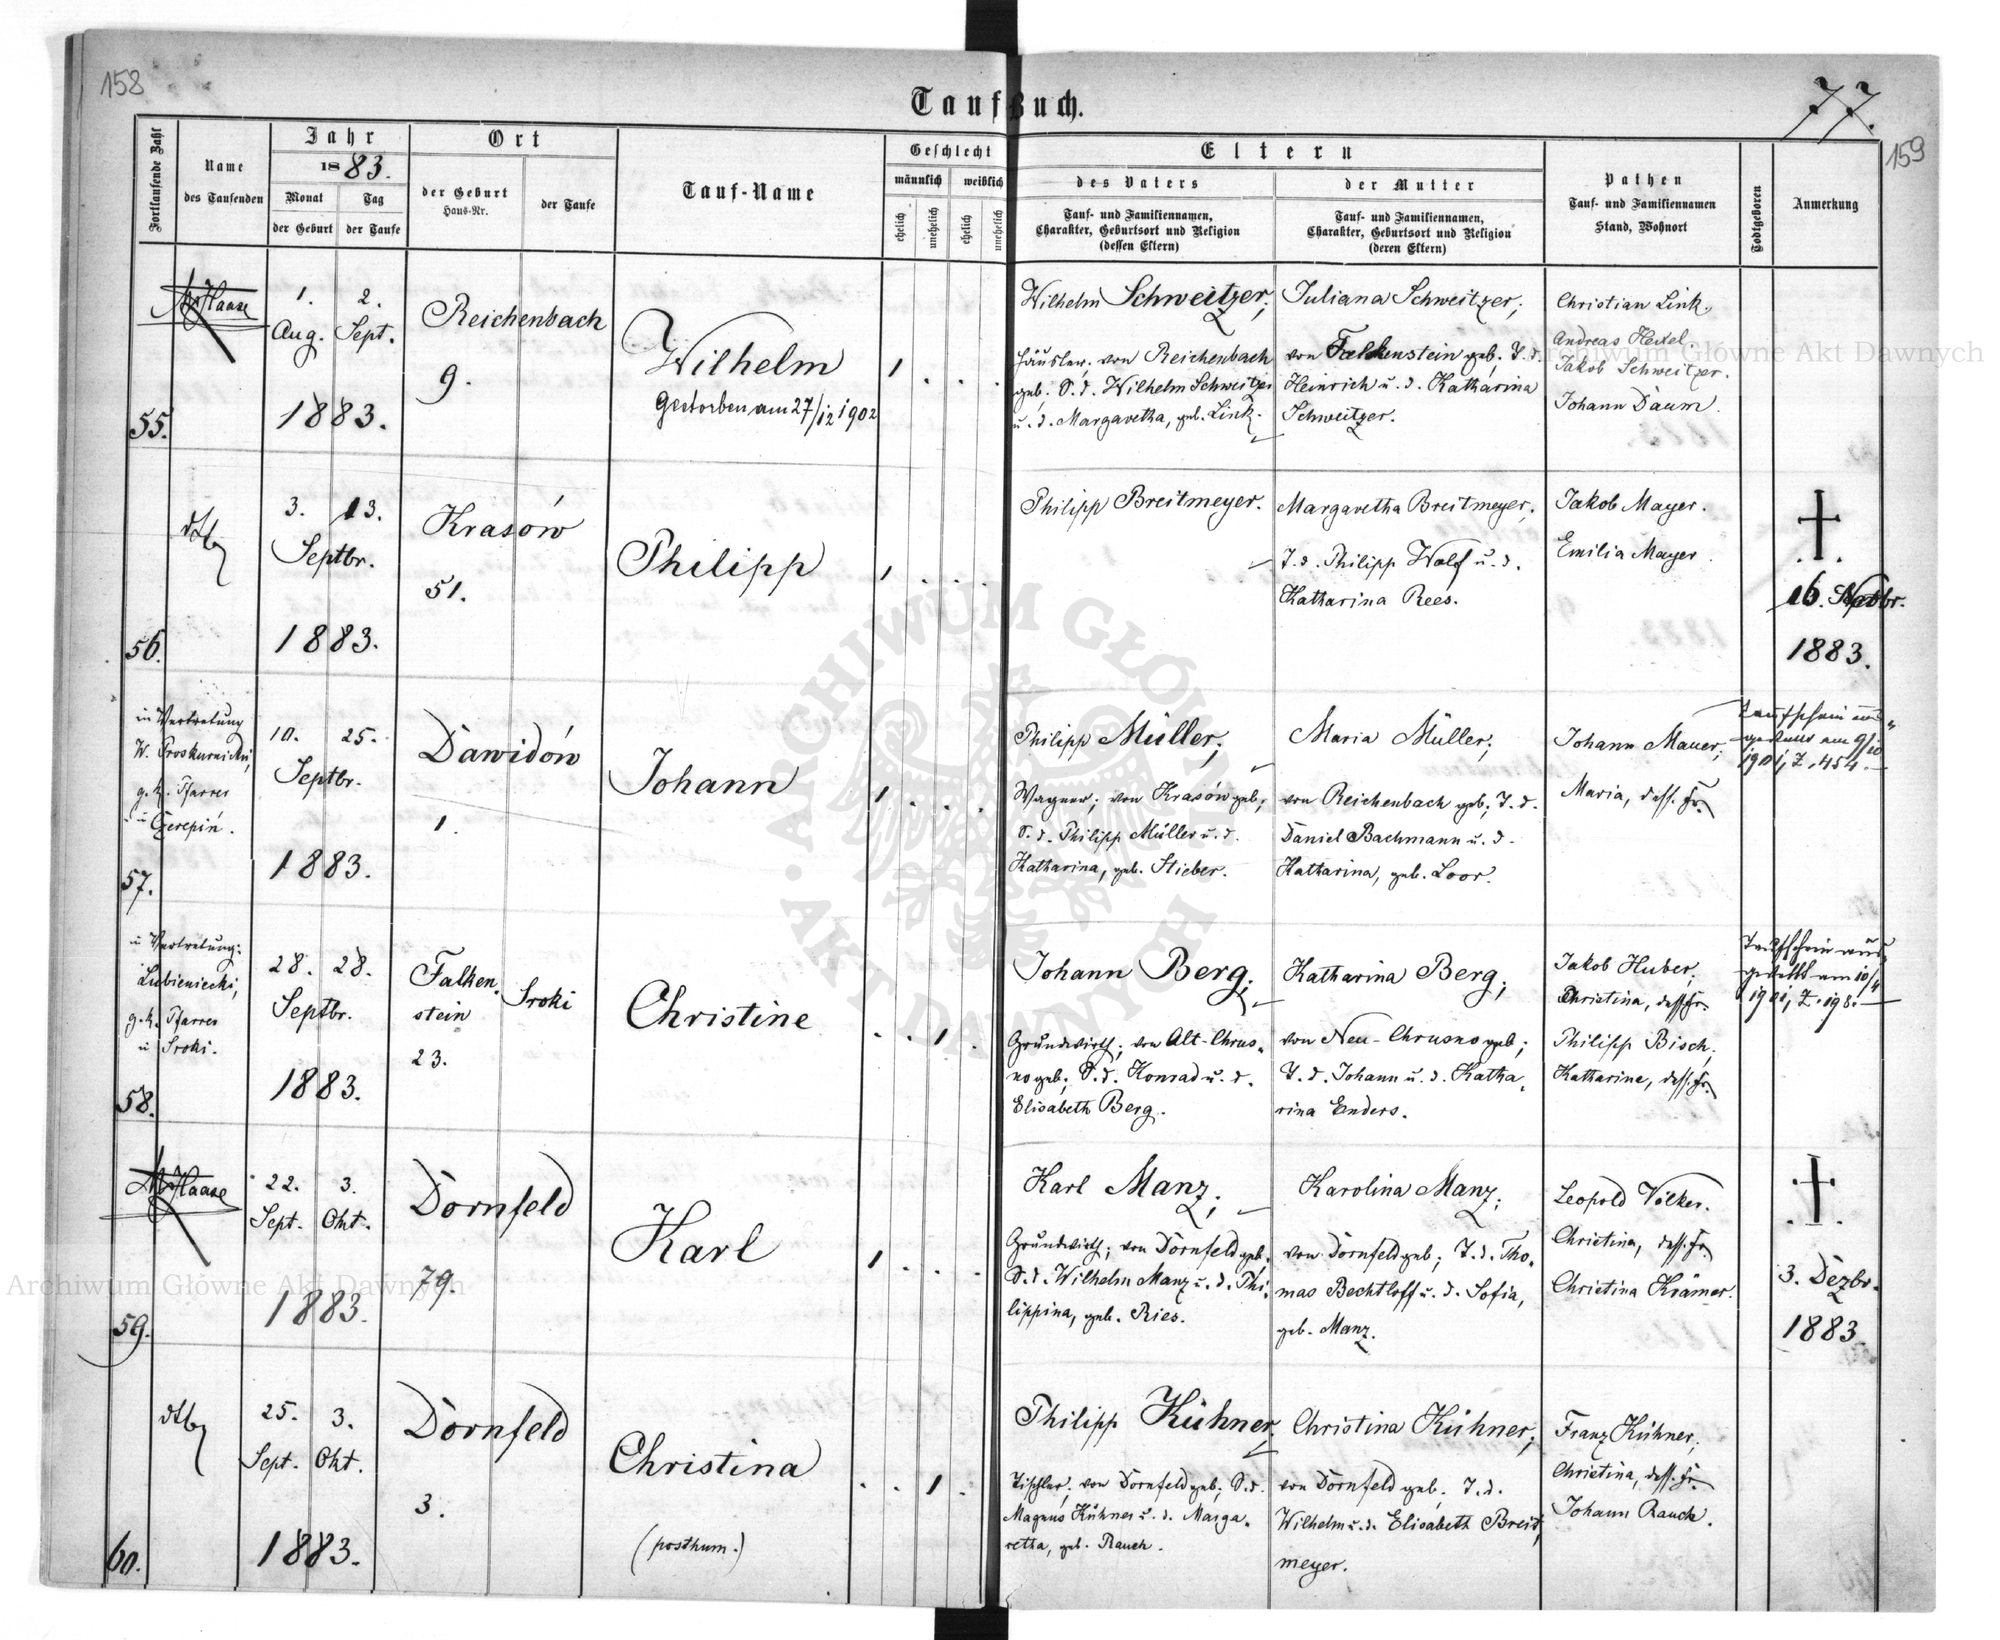 158
Taufbuch.
77.
159
Fortlaufende Zahl
Name
des Taufenden
Jahr
1883.
Monat
der Geburt
Tag
der Taufe
Ort
der Geburt
Haus-Nr.
der Taufe
Tauf-Name
Geschlecht
männlich
weiblich
ehelich
unehelich
ehelich
unehelich
Eltern
des Vaters
Tauf- und Familiennamen,
Charakter, Geburtsort und Religion
(dessen Eltern)
der Mutter
Tauf- und Familiennamen,
Charakter, Geburtsort und Religion
(deren Eltern)
Pathen
Tauf- und Familiennamen
Stand, Wohnort
Todtgeboren
Anmerkung
55.
Haase
1. 2.
Aug. Sept.
1883.
Reichenbach
9.
Wilhelm
Gestorben am 27/12 1902
1 . . .
Wilhelm Schweitzer;
Häusler; von Reichenbach
geb. S. d. Wilhelm Schweitzer
u. d. Margaretha, geb. Link.
Juliana Schweitzer;
von Falkenstein geb; T. d.
Heinrich u. d. Katharina
Schweitzer.
Christian Link.
Andreas Hexel.
Jakob Schweitzer.
Johann Daum.
56.
dtto
3. 13.
Septbr.
1883.
Krasów
51.
Philipp
1 . . .
Philipp Breitmeyer.
Margaretha Breitmeyer,
T. d. Philipp Wolf u. d.
Katharina Rees.
Jakob Mayer.
Emilia Mayer.
16. Septbr.
1883.
57.
in Vertretung
W. Proskurnicki,
g. k. Pfarrer
in Czerepin.
10. 25.
Septbr.
1883.
Dawidów
1.
Johann
1 . . .
Philipp Müller;
Wagner; von Krasów geb;
S. d. Philipp Müller u. d.
Katharina, geb. Stieber.
Maria Müller;
von Reichenbach geb; T. d.
Daniel Bachmann u. d.
Katharina, geb. Loor.
Johann Mauer;
Maria, dess. Fr.
Taufschein aus-
gestellt am 9/10
1901, Z. 454.
58.
in Vertretung:
Lubieniecki,
g. k. Pfarrer
in Sroki.
28. 28.
Septbr.
1883.
Falken-
stein
23.
Sroki
Christine
. . 1 .
Johann Berg;
Grundwirth; von Alt-Chrus-
no geb; S. d. Konrad u. d.
Elisabeth Berg.
Katharina Berg;
von Neu-Chrusno geb;
T. d. Johann u. d. Katha-
rina Enders.
Jakob Huber;
Christina, dess. Fr.
Philipp Bisch;
Katharine, dess. Fr.
Taufschein aus-
gestellt am 10/4
1901, Z. 198.
59.
Haase
22. 3.
Sept. Okt.
1883.
Dornfeld
79.
Karl
1 . . .
Karl Manz;
Grundwirth; von Dornfeld geb.
S. d. Wilhelm Manz u. d. Phi-
lippina, geb. Ries.
Karolina Manz;
von Dornfeld geb; T. d. Tho-
mas Bechtloff u. d. Sofia,
geb. Manz.
Leopold Völker.
Christina, dess. Fr.
Christina Krämer.
3. Dezbr.
1883.
60.
dtto
25. 3.
Sept. Okt.
1883.
Dornfeld
3.
Christina
(posthum.)
. . 1 .
Philipp Kühner,
Tischler; von Dornfeld geb; S. d.
Magnus Kühner u. d. Marga-
retha, geb. Rauch.
Christina Kühner;
von Dornfeld geb. T. d.
Wilhelm u. d. Elisabeth Breit-
meyer.
Franz Kühner;
Christina, dess. Fr.
Johann Rauch.
Archiwum Główne Akt Dawnych
Archiwum Główne Akt Dawnych
ARCHIWUM GŁÓWNE AKT DAWNYCH